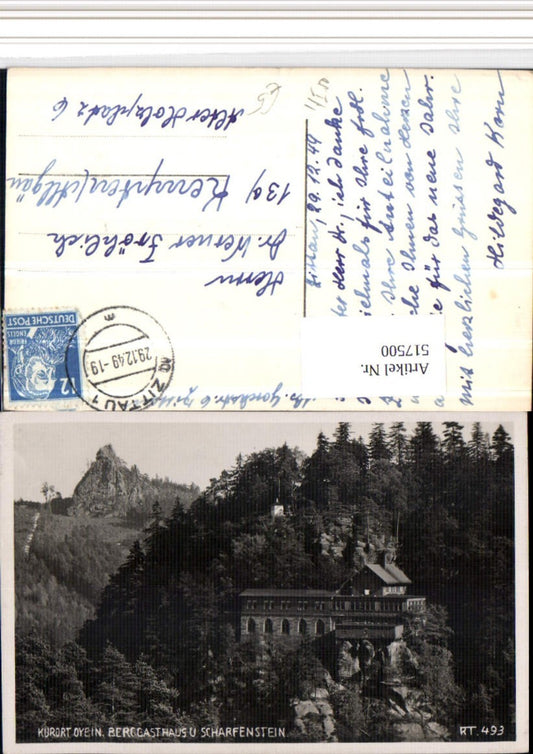 Zittau, 29.12.49
Herr Dr., ich danke
vielmals für Ihre frdl.
Ihre Anteilnahme
Ihnen von Herzen
für das neue Jahr.
mit herzlichen Grüssen Ihre
Hildegard Korn
Herrn
Dr. Werner Fröhlich
13a) Kempten/Allgäu
Alter Holzplatz 6
DEUTSCHE POST
12
ZITTAU 1
29.12.49
Artikel Nr.
517500
KURORT OYBIN. BERGGASTHAUS U. SCHARFENSTEIN
RT. 493